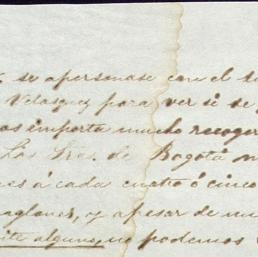 se apersonase con el
Velasquez para ver si se
importa mucho recoger
Las Sres. de Bogotá
á cada cuatro ó cinco
renglones, y apesar de
alguno, no podemos